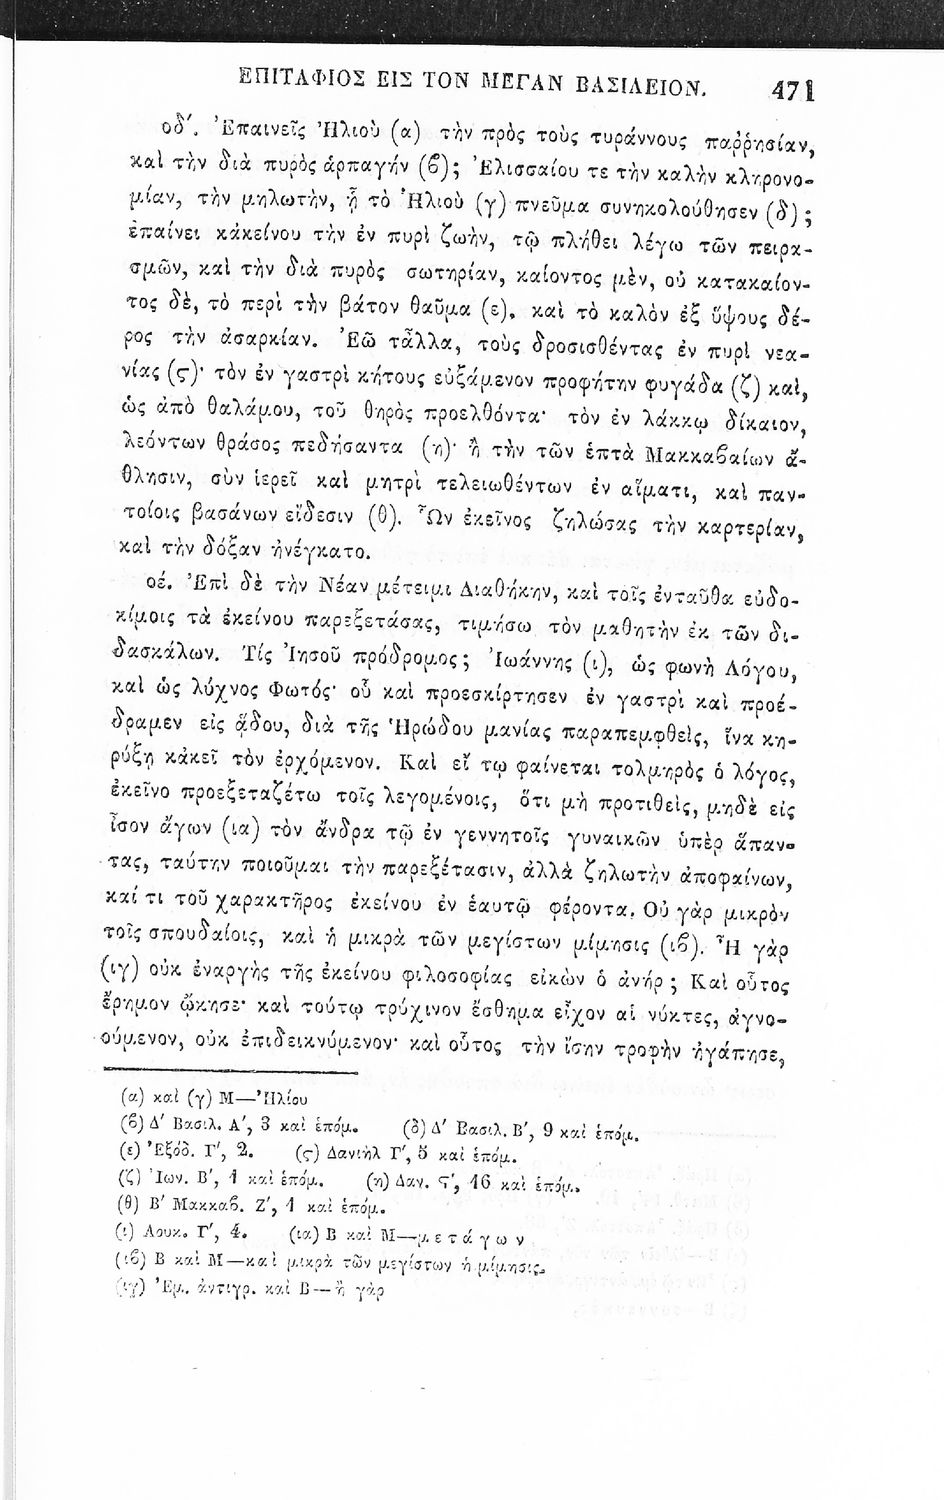 ΕΠΙΤΑΦΙΟΣ ΕΙΣ ΤΟΝ ΜΕΓΑΝ ΒΑΣΙΛΕΙΟΝ. 471
οδʹ. Ἐπαινεῖς Ἠλιοὺ (α) τὴν πρὸς τοὺς τυράννους παῤῥησίαν,
καὶ τὴν διὰ πυρὸς ἁρπαγήν (ϐ); Ἐλισσαίου τε τὴν καλὴν κληρονο-
μίαν, τὴν μηλωτὴν, ᾗ τὸ Ἠλιοὺ (γ) πνεῦμα συνηκολούθησεν (δ);
ἐπαίνει κἀκείνου τὴν ἐν πυρὶ ζωὴν, τῷ πλήθει λέγω τῶν πειρα-
σμῶν, καὶ τὴν διὰ πυρὸς σωτηρίαν, καίοντος μὲν, οὐ κατακαίον-
τος δὲ, τὸ περὶ τὴν βάτον θαῦμα (ε). καὶ τὸ καλὸν ἐξ ὕψους δέ-
ρος τὴν ἀσαρκίαν. Ἐῶ τἆλλα, τοὺς δροσισθέντας ἐν πυρὶ νεα-
νίας (ς)· τὸν ἐν γαστρὶ κήτους εὐξάμενον προφήτην φυγάδα (ζ) καὶ,
ὡς ἀπὸ θαλάμου, τοῦ θηρὸς προελθόντα· τὸν ἐν λάκκῳ δίκαιον,
λεόντων θράσος πεδήσαντα (η)· ἢ τὴν τῶν ἑπτὰ Μακκαϐαίων ἄ-
θλησιν, σὺν ἱερεῖ καὶ μητρὶ τελειωθέντων ἐν αἵματι, καὶ παν-
τοίοις βασάνων εἴδεσιν (θ). Ὧν ἐκεῖνος ζηλώσας τὴν καρτερίαν,
καὶ τὴν δόξαν ἠνέγκατο.
οέ. Ἐπὶ δὲ τὴν Νέαν μέτειμι Διαθήκην, καὶ τοῖς ἐνταῦθα εὐδο-
κίμοις τὰ ἐκείνου παρεξετάσας, τιμήσω τὸν μαθητὴν ἐκ τῶν δι-
δασκάλων. Τίς Ἰησοῦ πρόδρομος; Ἰωάννης (ι), ὡς φωνὴ Λόγου,
καὶ ὡς λύχνος Φωτός· οὗ καὶ προεσκίρτησεν ἐν γαστρὶ καὶ προέ-
δραμεν εἰς ᾅδου, διὰ τῆς Ἡρώδου μανίας παραπεμφθεὶς, ἵνα κη-
ρύξῃ κἀκεῖ τὸν ἐρχόμενον. Καὶ εἴ τῳ φαίνεται τολμηρὸς ὁ λόγος,
ἐκεῖνο προεξεταζέτω τοῖς λεγομένοις, ὅτι μὴ προτιθεὶς, μηδὲ εἰς
ἶσον ἄγων (ια) τὸν ἄνδρα τῷ ἐν γεννητοῖς γυναικῶν ὑπὲρ ἅπαν-
τας, ταύτην ποιοῦμαι τὴν παρεξέτασιν, ἀλλὰ ζηλωτὴν ἀποφαίνων,
καί τι τοῦ χαρακτῆρος ἐκείνου ἐν ἑαυτῷ φέροντα. Οὐ γὰρ μικρὸν
τοῖς σπουδαίοις, καὶ ἡ μικρὰ τῶν μεγίστων μίμησις (ιϐ). Ἦ γὰρ
(ιγ) οὐκ ἐναργὴς τῆς ἐκείνου φιλοσοφίας εἰκὼν ὁ ἀνήρ; Καὶ οὗτος
ἔρημον ᾤκησε· καὶ τούτῳ τρύχινον ἔσθημα εἶχον αἱ νύκτες, ἀγνο-
ούμενον, οὐκ ἐπιδεικνύμενον· καὶ οὗτος τὴν ἴσην τροφὴν ἠγάπησε,
(α) καὶ (γ) Μ—Ἠλίου
(ϐ) Δʹ Βασιλ. Αʹ, 3 καὶ ἑπόμ. (δ) Δʹ Βασιλ. Βʹ, 9 καὶ ἑπόμ.
(ε) Ἐξόδ. Γʹ, 2. (ς) Δανιὴλ Γʹ, 5 καὶ ἑπόμ.
(ζ) Ἰων. Βʹ, 1 καὶ ἑπόμ. (η) Δαν. Ϛʹ, 16 καὶ ἑπόμ.
(θ) Βʹ Μακκαϐ. Ζʹ, 1 καὶ ἑπόμ.
(ι) Λουκ. Γʹ, 4. (ια) Β καὶ Μ—μετάγων
(ιϐ) Β καὶ Μ—καὶ μικρὰ τῶν μεγίστων ἡ μίμησις.
(ιγ) Ἐμ. ἀντιγρ. καὶ Β—ἢ γὰρ